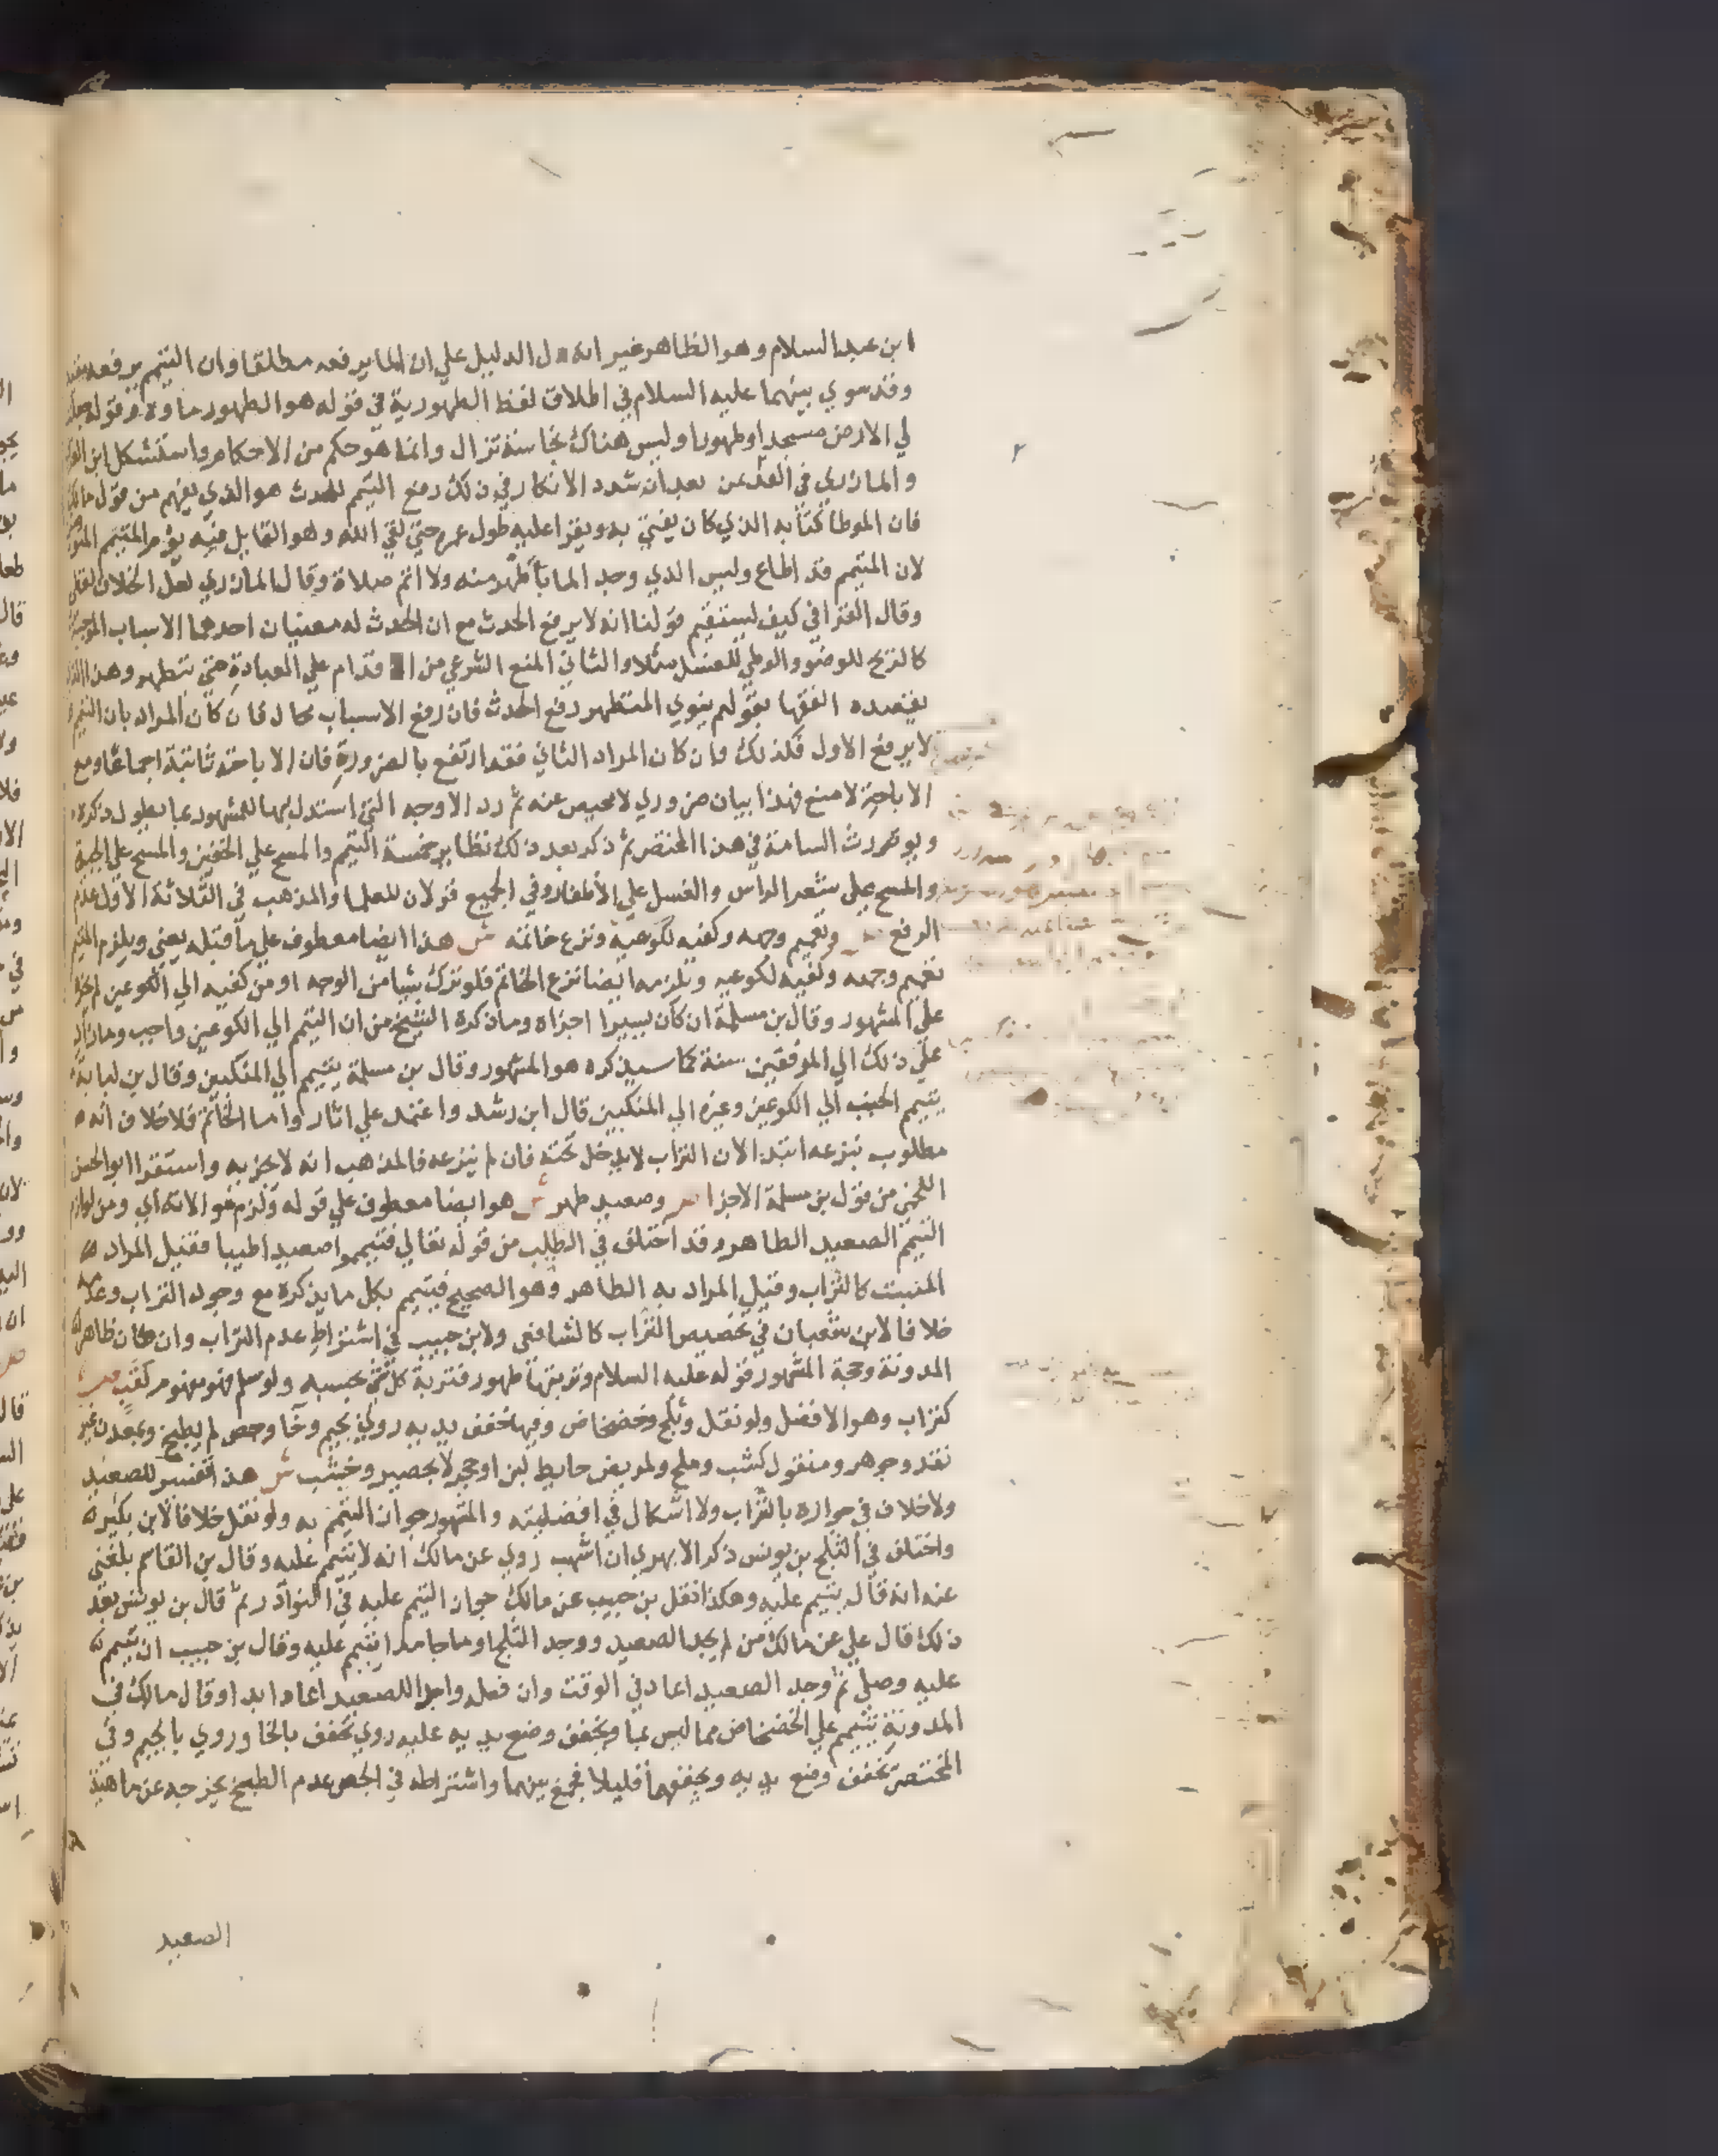 ابن عبد السلام وهو الظاهر غير انه دل الدليل علي ان الما يرفعه مطلقا وان التيمم يرفعه
وقد سوي بينهما عليه السلام في اطلاق لفظ الطهورية في قوله هو الطهور ماوه وقوله جعلت
لي الارض مسجدا وطهورا وليس هناك نجاسة تزال وانما هو حكم من الاحكام واستشكل ابن
والمازري في بعد ان شدد الانكار في ذلك رفع التيمم للحدث هو الذي يفهم من قول مالك
فان الموطا كتابه الذي كان يفتي به ويقرا عليه طول عمره حتي لقي الله وهو القايل فيه يوم المتيمم
لان المتيمم قد اطاع وليس الذي وجد الما باطهر منه ولا اتم صلاة وقال المازري لعل الخلاف
وقال القرافي كيف يستقيم قولنا انه لا يرفع الحدث مع ان الحدث له معنيان احدهما الاسباب الموجبة
كالريح للوضو والوطي للغسل مثلا والثاني المنع الشرعي من الاقدام علي العبادة حتي يتطهر وهذا الذي
يقصده الفقها بقولهم ينوي المتطهر رفع الحدث فان رفع الاسباب محال فان كان المراد بان التيمم
لا يرفع الاول فكذلك وان كان المراد الثاني فقد ارتفع بالضرورة فان الاباحة ثابتة اجماعا ومع
الاباحة لا منع فهذا بيان ضروري لا محيص عنه ثم رد الاوجه التي استدل بها للمشهور بما يطول ذكره
ويورث السامة في هذا المختصر ثم ذكر بعد ذلك نظاير خمسة التيمم والمسح علي الخفين والمسح علي الجبيرة
والمسح علي شعر الراس والغسل علي الاظفار وفي الجميع قولان للعلما والمذهب في الثلاثة الاول عدم
الرفع ص وتعميم وجهه وكفيه لكوعيه ونزع خاتمه ش هذا ايضا معطوف علي ما قبله يعني ويلزم المتيمم
تعميم وجهه وكفيه لكوعيه ويلزمه ايضا نزع الخاتم فلو ترك شيا من الوجه او من كفيه الي الكوعين لم يجزه
علي المشهور وقال بن مسلمة ان كان يسيرا اجزاه وما ذكره الشيخ من ان التيمم الي الكوعين واجب وما زاد
علي ذلك الي المرفقين سنة كما سيذكره هو المشهور وقال بن مسلمة يتيمم الي المنكبين وقال بن لبابة
يتيمم الجنب الي الكوعين وغيره الي المنكبين قال ابن رشد واعتمد علي اثار واما الخاتم فلا خلاف انه
مطلوب بنزعه ابتدا لان التراب لا يدخل تحته فان لم ينزعه فالمذهب انه لا يجزيه واستقرا ابو الحسن
اللخمي من قول بن مسلمة الاجزا ص وصعيد طهر ش هو ايضا معطوف علي قوله ولزم موالاته اي ومن لوازم
التيمم الصعيد الطاهر وقد اختلف في الطيب من قوله تعالي فتيمموا صعيدا طيبا فقيل المراد
المنبت كالتراب وقيل المراد به الطاهر وهو الصحيح فيتيمم بكل ما يذكره مع وجود التراب وعدمه
خلافا لابن شعبان في تخصيص التراب كالشافعي ولابن حبيب في اشتراط عدم التراب وان كان ظاهر
المدونة وحجة المشهور قوله عليه السلام وتربتها طهور فتربة كل شي بحسبه ولو سلم فهو مفهوم لقب ص
كتراب وهو الافضل ولو نقل وثلج وخضخاض وفيها خفف يديه روي بجيم وخا وجص لم يطبخ وبمعدن غير
نقد وجوهر ومنقول كشب وملح ولمريض حايط لبن او حجر لا بحصير وخشب ش هذا تفسير للصعيد
ولا خلاف في جوازه بالتراب ولا اشكال في افضليته والمشهور جواز التيمم به ولو نقل خلافا لابن بكير
واختلف في الثلج بن يونس ذكر الابهري ان اشهب روي عن مالك انه لا يتيمم عليه وقال بن القاسم بلغني
عنه انه قال يتيمم عليه وهكذا نقل بن حبيب عن مالك جواز التيمم عليه في النوادر ثم قال بن يونس بعد
ذلك قال علي عن مالك من لم يجد الصعيد ووجد الثلج او ما جامدا تيمم عليه وقال بن حبيب ان تيمم
عليه وصلي ثم وجد الصعيد اعاد في الوقت وان فعله واجدا للصعيد اعاد ابدا وقال مالك في
المدونة يتيمم علي الخضخاض مما ليس بما ويخفف وضع يديه عليه روي يخفف بالخا وروي بالجيم وفي
المختصر يخفف وضع يديه ويجففهما قليلا فجمع بينهما واشتراطه في الجص عدم الطبخ يخرجه عن ماهية
الصعيد